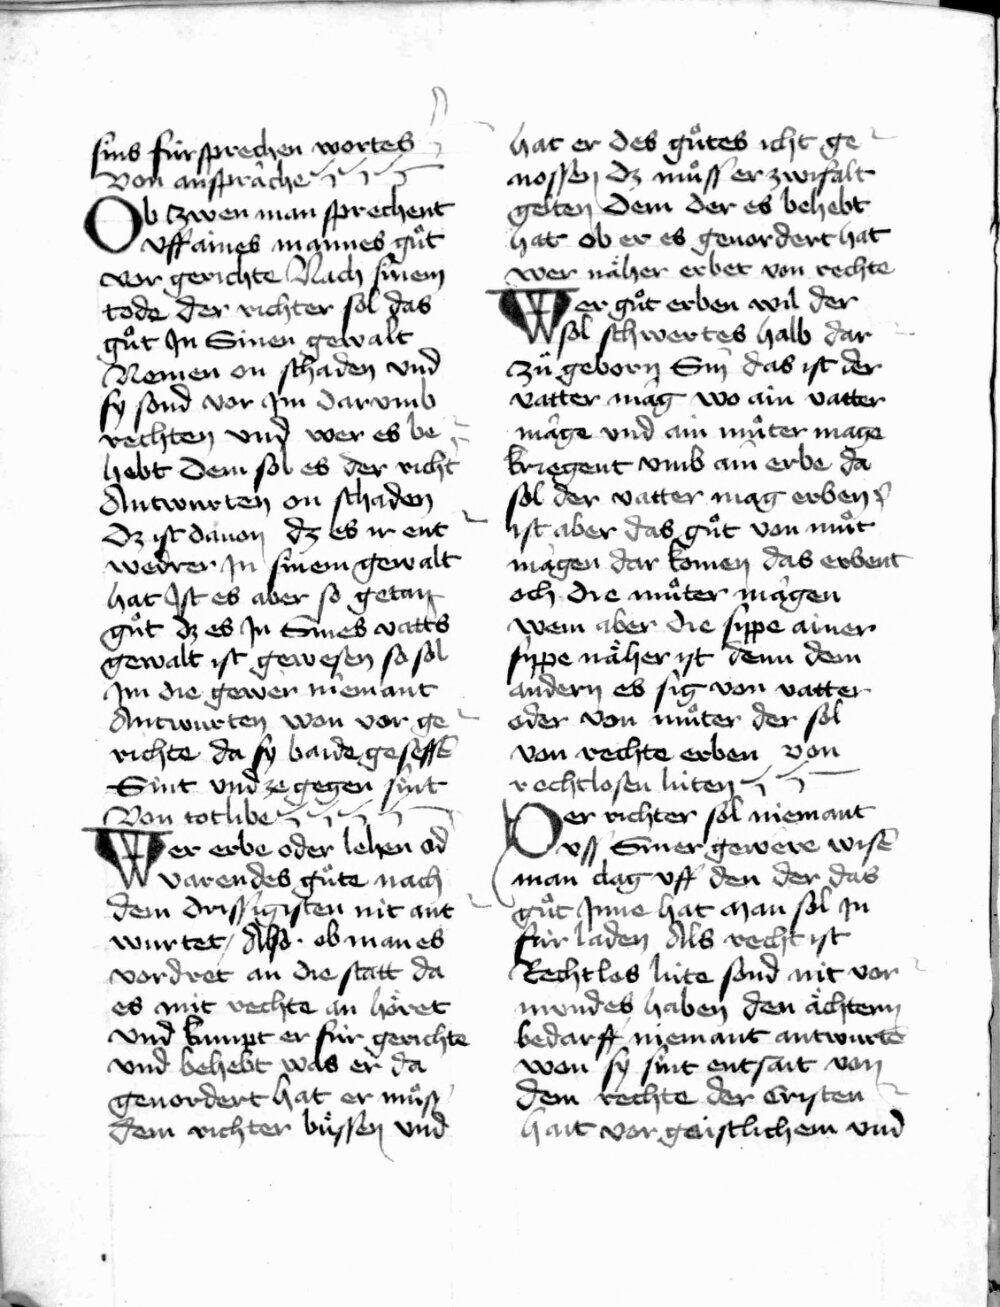 sins fürsprechen wortes
Von ansprache
Ob zwen man sprechent
vff aines mannes gůt
vor gerichte Nach sinem
tode der richter sol das
gůt Jn Sinen gewalt
Nemen on schaden vnd
sy sond vor Jm darumb
rechten vnd wer es be
hebt dem sol es der richt
Antwurten on schaden
Dz ist dauon dz es ir ent
wedrer Jn sinem gewalt
hat Jst es aber so getan
gůt dz es Jn Sines vatts
gewalt ist gewesen so sol
Jm die gewer niemant
Antwurten won vor ge
richte da sy baide gesessē
Sint vnd ze gegen sint
Von totlibe
Wer erbe oder lehen od
varendes gůte nach
dem drissigisten nit ant
wurtet / Also · ob man es
vordret an die statt da
es mit rechte an höret
vnd kumpt er für gerichte
vnd behebt was er da
geuordert hat er můß
dem richter büssen vnd
hat er des gůtes icht ge
nossen dz můß er zwifalt
gelten dem der es behebt
hat ob er es geuordert hat
wer näher erbet von rechte
Wer gůt erben wil der
sol schwertes halb dar
zů geborn Sin das ist der
vatter mag wo ain vatter
mage vnd ain můter mage
kriegent vmb ain erbe da
sol der vatter mag erben
ist aber das gůt von můt
magen dar komen das erbent
och die můter magen
wem aber die sippe ainer
sippe näher ist denn dem
andern es sig von vatter
oder von můter der sol
von rechte erben von
rechtlosen lüten
Der richter sol niemant
vss Siner gewere wisē
man clag vff den der das
gůt Jnne hat man sol Jn
für laden Als recht ist
Rechtlos lüte sond nit vor
mundes haben den ächtern
bedarff niemant antwurtē
won sy sint entsait von
dem rechte der Cristen
hait vor gaistlichem vnd